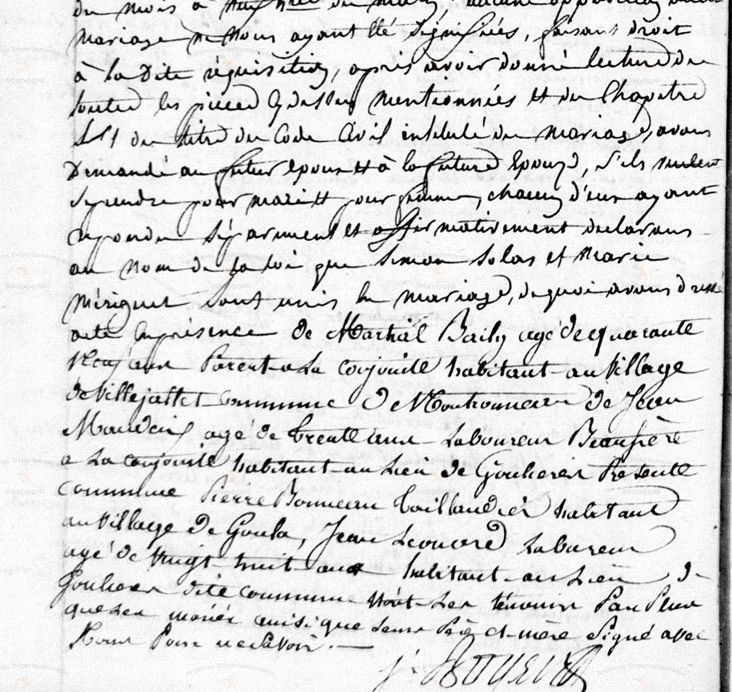 du mois à
mariage ne nous ayant été signifiées, faisant droit
à la dite réquisition, après avoir donné lecture de
toutes les pièces mentionnées et du chapitre
du titre du Code Civil intitulé du mariage, avons
demandé au futur époux et à la future épouse, s'ils veulent
se prendre pour mari et pour femme, chacun d'eux ayant
repondu séparément et affirmativement declarons
au nom de la loi que Simon Solas et Marie
Mériguet sont unis en mariage, de quoi avons dressé
acte en présence de Martial Baily agé de quarante
Neuf ans Parent a La conjointe habitant au Village
de Villejallet commune de de Jean
agé de trente ans Laboureur Beaufrère
a La conjointe habitant au Lieu de Goulieras Presente
commune Pierre Bonneau taillandier habitant
au Village de Goula, Jean Leonard Laboureur
agé de vingt huit ans habitant au Lieu de
Goulieras dite commune Les témoins
mariés ainsi que Leurs Père et mère Signé avec
Nous Pour